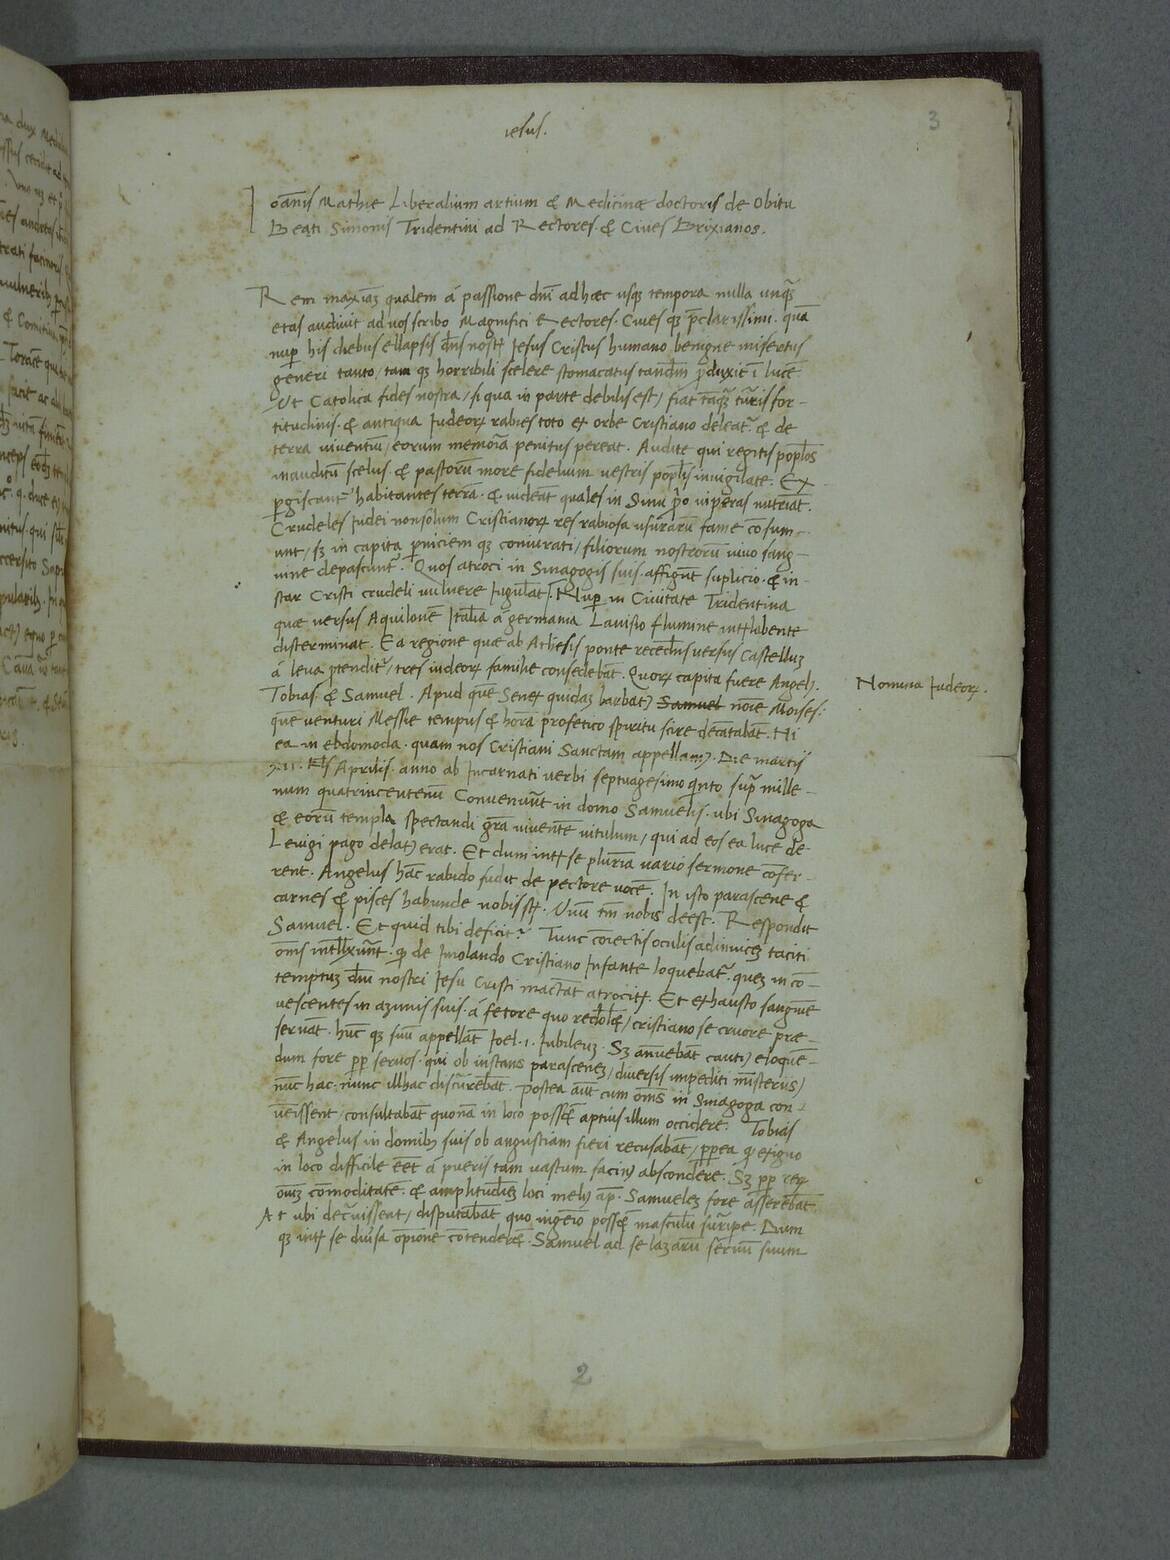 iesus.
3
Ioãnis Mathie Liberalium artium & Medicinæ doctoris de Obitu
Beati Simonis Tridentini ad Rectores & Ciues Brixianos.
Rem maxiaꝫ qualem á passione dñi ad hæc usqꝫ tempora nulla unqꝫ̃
etas audiuit ad uos scribo Magnifici Rectores. Ciues qꝫ p̃clarissimi. quã
nup̱ his diebus ellapsis dñs nost̃ Jesus Cristus humano benigne misertus
generi tanto / tam qꝫ horribili scelere stomacatus tandẽ p̱duxit ĩ lucẽ
Ut Catolica fides nostra / si qua in parte debilis est / fiat tãqꝫ̃ tur̃is for-
titudinis. & antiqua Judeoꝝ rabies toto et orbe Cristiano deleat̃. & de
terra uiuentiũ / eorum memoria penitus pereat. Audite qui regitis pop̱los
inauditũ scelus. & pastorũ more fidelium uestris pop̱lis inuigilate. Ex
p̱giscant̃ habitantes terrã. & uideãt quales in Sinu p̃o uiperas nutriãt.
Crudeles Judei non solum Cristianoꝝ res rabiosa usurarũ fame cõsum-
unt / sꝫ in capita p̱niciem qꝫ coniurati / filiorum nostrorũ uiuo sang-
uine depascunt̃. Quos atroci in Sinagogis suis. affigũt suplicio. & in-
star Cristi crudeli uulnere Iugulãt. Nup̱ in Ciuitate Tridentina
quæ uersus Aquilonẽ Italiã á germania Lauisio flumine int̃labente
disterminat. Ea regione quæ ab Athesis ponte recedẽs uersus Castelluꝫ
á leua p̱tendit̃ / tres iudeoꝝ familie consedebãt. Quoꝝ capita fuere Angelꝰ.
Nomina Judeoꝝ.
Tobias. & Samuel. Apud quẽ Senex quidaꝫ barbatꝰ Samuel noĩe Moises.
quẽ uenturi Messie tempus & horã profetico spiritu scire decãtabãt. Hi
ea in ebdomoda. quam nos Cristiani Sanctam appellamꝰ. Die martis
XII. Kl̃s Aprilis. anno ab Incarnati uerbi septuagesimo quĩto sup̃ mille-
num quatrincentenũ Conueniũt in domo Samuelis. ubi Sinagoga
& eorũ templa spectandi gr̃a uiuentẽ uitulum / qui ad eos ea luce de
Leuigi pago delatꝰ erat. Et dum int̃ se pluria uario sermone cõfer-
rent. Angelus hãc rabido fudit de pectore uocẽ. In isto parascene &
carnes & pisces habunde nobis sũt. Unũ tm̃ nobis deest. Respondit
Samuel. Et quid tibi deficit? Tunc cõiectis oculis adinuicẽ taciti
oms̃ intellexũnt. q̱ de Imolando Cristiano Infante loquebat̃. queꝫ in cõ-
temptuꝫ dñi nostri Jesu Cristi mactãt atrocit̃. Et exhausto sanguĩe
uescentes in azimis suis. á fetore quo redolẽt / cristiano se cruore præ-
seruãt. hũc qꝫ suũ appellãt Joel. 1. Iubileuꝫ. Sꝫ anuebãt cauti / eloquẽ-
dum fore pp̱ seruos. qui ob instans parascenes / diuersis impediti misteriis /
nũc hac. nunc illhac discurrebãt. Postea aũt cum oms̃ in Sinagoga con-
uẽissent / consultabãt quonã in loco possẽt aptius illum occidere. Tobias
& Angelus in domibꝫ suis ob angustiam fieri recusabãt / pp̱ea q̱ exiguo
in loco difficile eẽt á pueris tam uastum facinꝰ abscondere. Sꝫ pp̱ reꝝ
oniꝫ cõmoditatẽ. & amplitudinẽ loci meliꝰ ap̱. Samueleꝫ fore asserebãt.
At ubi decreuisseãt / disputabãt quo ingenio possẽt masculũ surripe. Dum
qꝫ int̃ se diuisa opinione cõtenderẽt. Samuel ad se lazarũ seruũ suum
2